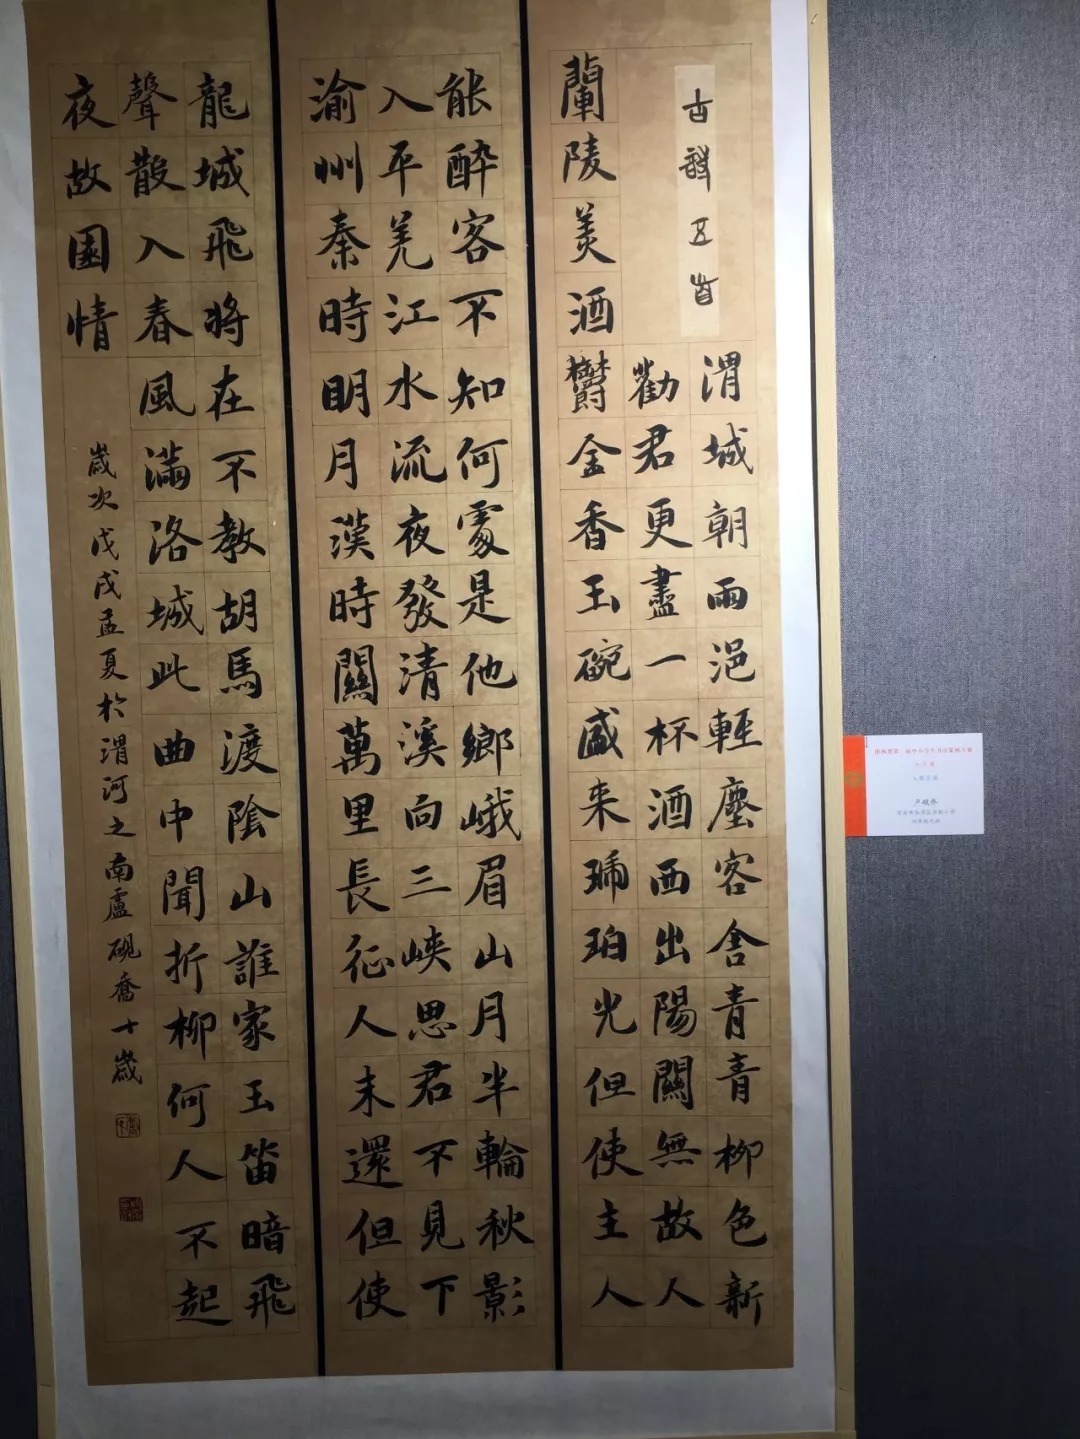 古詩五首
渭城朝雨浥輕塵客舍青青柳色新
勸君更盡一杯酒西出陽關無故人
蘭陵美酒鬱金香玉碗盛来琥珀光但使主人
能醉客不知何處是他鄉峨眉山月半輪秋影
入平羌江水流夜發清溪向三峽思君不見下
渝州秦時明月漢時關萬里長征人未還但使
龍城飛將在不教胡馬渡陰山誰家玉笛暗飛
聲散入春風滿洛城此曲中聞折柳何人不起
夜故園情
歲次戊戌孟夏於渭河之南盧硯喬十歲